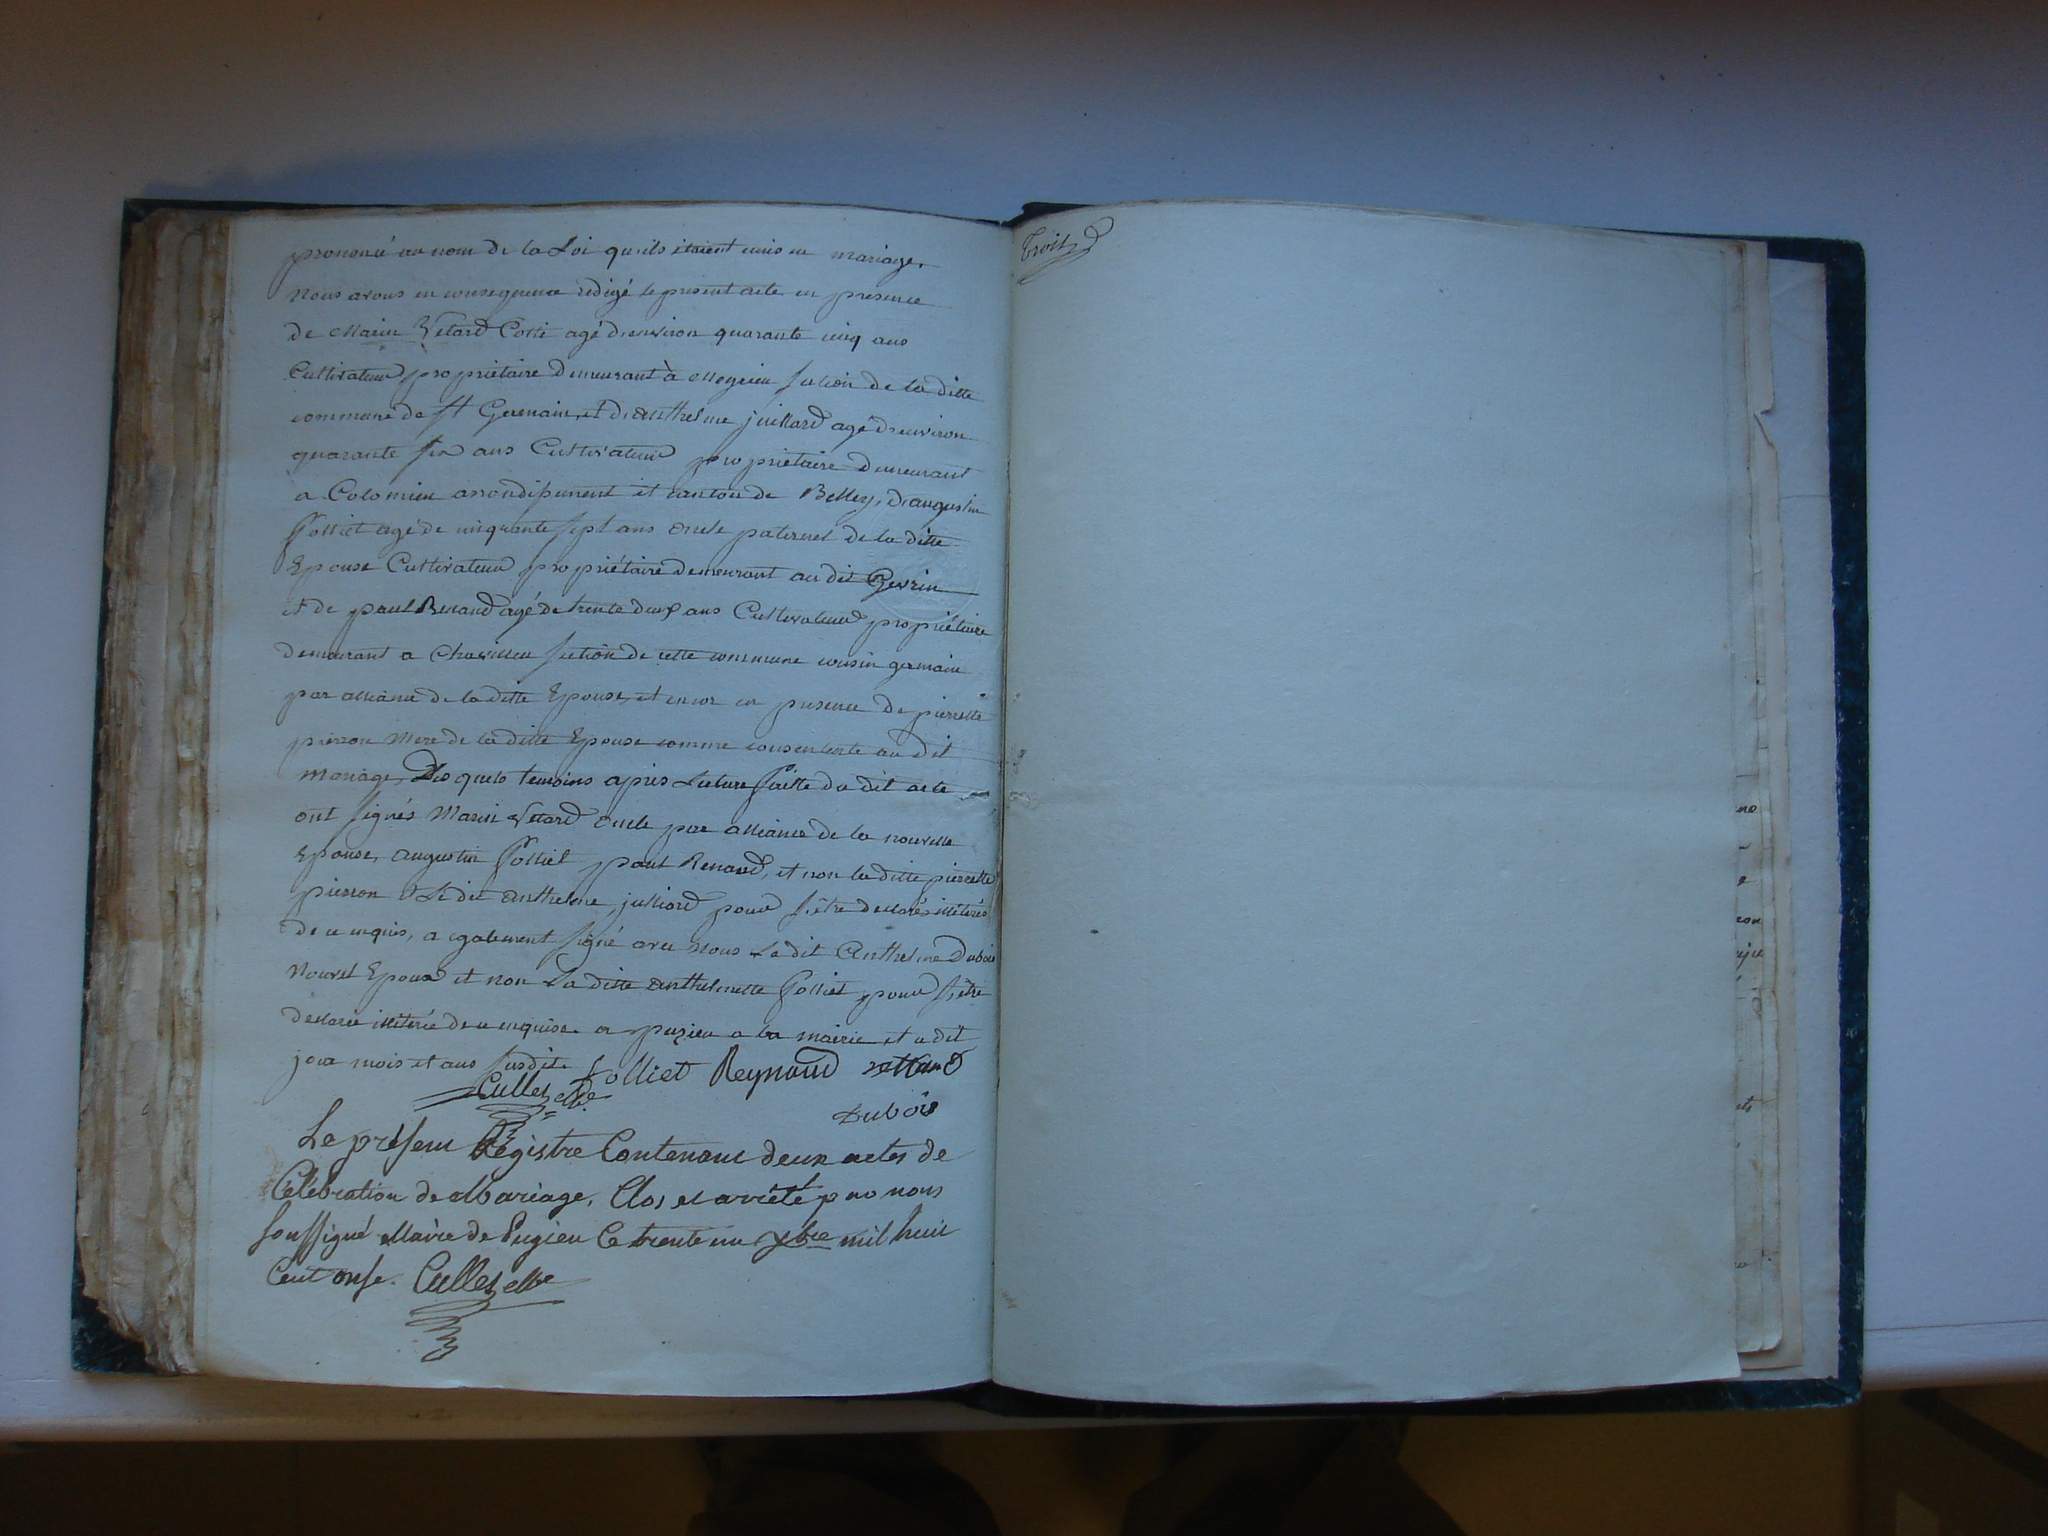 prononcé au nom de la Loi qu'ils étaient unis en mariage,
Nous avons en consequence rédigé le present acte en presence
de Marin Vetard agé d'environ quarante cinq ans
Cultivateur propriétaire demeurant à Meyrieu section de la ditte
commune de St Germain, et d'anthelme juillard agé d'environ
quarante six ans Cultivateur propriétaire demeurant
a Colomieu arrondissement et canton de Belley, d'augustin
folliet agé de cinquante sept ans oncle paternel de la ditte
Epouse Cultivateur propriétaire demeurant au dit Gevrin
et de paul Renaud agé de trente deux ans Cultivateur propriétaire
demeurant a Chavilleu section de cette commune cousin germain
par alliance de la ditte Epouse, et encor en presence de pierrette
pierson Mere de la ditte Epouse comme consentente au dit
mariage, Les quels temoins après Lecture faitte du dit acte
ont signés Marin Vetard oncle par alliance de la nouvelle
Epouse, augustin folliet paul Renaud, et non la ditte pierrette
pierson & le dit anthelme julliard pour s'être declarés illiterés
de ce enquis, a egalement signé avec Nous Le dit Anthelme Dubois
Nouvel Epoux et non La ditte anthelmette folliet pour s'être
declarée illiterée de ce enquise. a pugieu a la mairie et a dit
jour mois et ans susdit. folliet Reynaud vettard
Cullet Mre
Dubois
Le présent Régistre Contenant deux actes de
Célébration de Mariage, Clos et arrêté par nous
soussigné Maire de Pugieu Ce trente un xbre mil huit
Cent onse. Cullet Mre
Trois